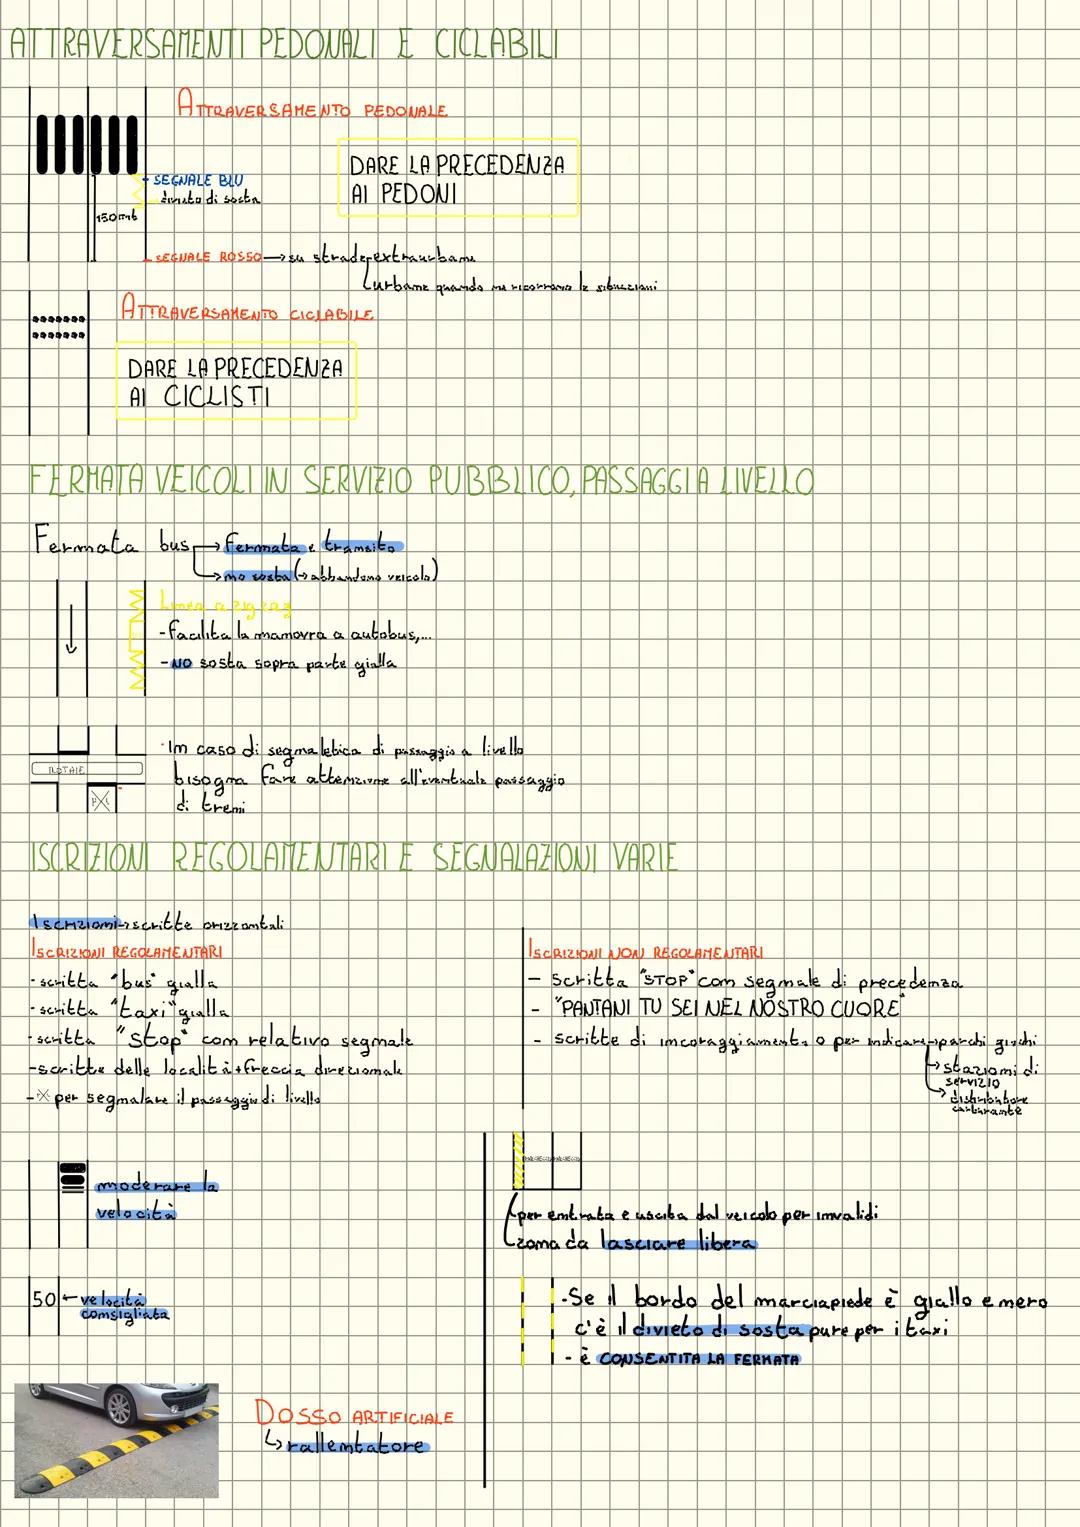 ATTRAVERSAMENTI PEDONALI E CICLABILI
ATTRAVERSAMENTO PEDONALE
DARE LA PRECEDENZA
AI PEDONI
SEGNALE BLU
divieto di sosta
150mt
SEGNALE ROSSO → su strade extraurbane
urbane quando ne ricorrono le situazioni
ATTRAVERSAMENTO CICLABILE
DARE LA PRECEDENZA
AI CICLISTI
FERMATA VEICOLI IN SERVIZIO PUBBLICO, PASSAGGI A LIVELLO
Fermata bus → fermata e transito
→ no sosta (→ abbandono veicolo)
Linea a zig zag
- facilita la manovra a autobus,...
- NO sosta sopra parte gialla
ROTAIE
PL
· In caso di segnaletica di passaggio a livello
bisogna fare attenzione all'eventuale passaggio
di treni
ISCRIZIONI REGOLAMENTARI E SEGNALAZIONI VARIE
Iscrizioni → scritte orizzontali
ISCRIZIONI REGOLAMENTARI
- scritta "bus" gialla
- scritta "taxi" gialla
- scritta "stop" con relativo segnale
- scritte delle località + freccia direzionale
- X per segnalare il passaggio di livello
ISCRIZIONI NON REGOLAMENTARI
- scritta "STOP" con segnale di precedenza
- "PANTANI TU SEI NEL NOSTRO CUORE"
- scritte di incoraggiamento o per indicare → parchi giochi
→ stazioni di
servizio
→ distributore
carburante
moderare la
velocità
50 ← velocità
consigliata
DOSSO ARTIFICIALE
↳ rallentatore
per entrata e uscita dal veicolo per invalidi
zona da lasciare libera
- Se il bordo del marciapiede è giallo e nero
c'è il divieto di sosta pure per i taxi
- è CONSENTITA LA FERMATA